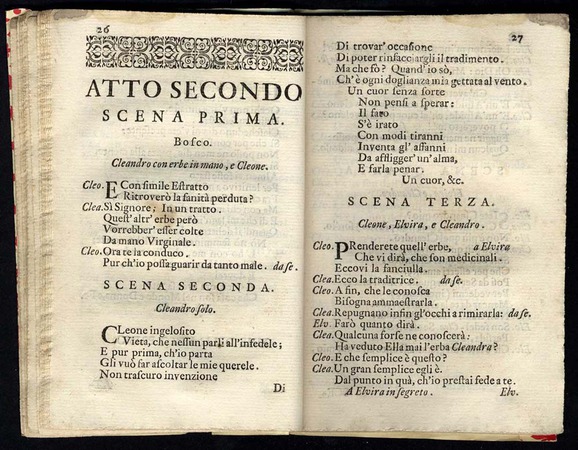 26
ATTO SECONDO
SCENA PRIMA.
Bosco.
Cleandro con erbe in mano, e Cleone.
Cleo. E Con simile Estratto
Ritroverò la sanità perduta?
Clea. Sì Signore: In un tratto.
Quest' altr' erbe però
Vorrebber' esser colte
Da mano Virginale.
Cleo. Ora te la conduco.
Pur ch'io possa guarir da tanto male. da se.
SCENA SECONDA.
Cleandro solo.
CLeone ingelosito
Vieta, che nessun parli all'infedele;
E pur prima, ch'io parta
Gli vuò far ascoltar le mie querele.
Non trascuro invenzione
Di
27
Di trovar' occasione
Di poter rinfacciargli il tradimento.
Ma che fò? Quand' io sò,
Ch'è ogni doglianza mia gettata al vento.
Un cuor senza sorte
Non pensi a sperar:
Il fato
S'è irato
Con modi tiranni
Inventa gl' affanni
Da affligger un'alma,
E farla penar.
Un cuor, &c.
SCENA TERZA.
Cleone, Elvira, e Cleandro.
Cleo. PRenderete quell' erbe, a Elvira
Che vi dirà, che son medicinali.
Eccovi la fanciulla.
Clea. Ecco la traditrice. da se.
Cleo. A fin, che le conosca
Bisogna ammaestrarla.
Clea. Repugnano infin gl'occhi a rimirarla: da se.
Elv. Farò quanto dirà.
Clea. Qualcuna forse ne conoscerà:
Ha veduto Ella mai l'erba Cleandra?
Cleo. E che semplice è questo?
Clea. Un gran semplice egli è.
Dal punto in quà, ch'io prestai fede a te.
A Elvira in segreto. Elv.